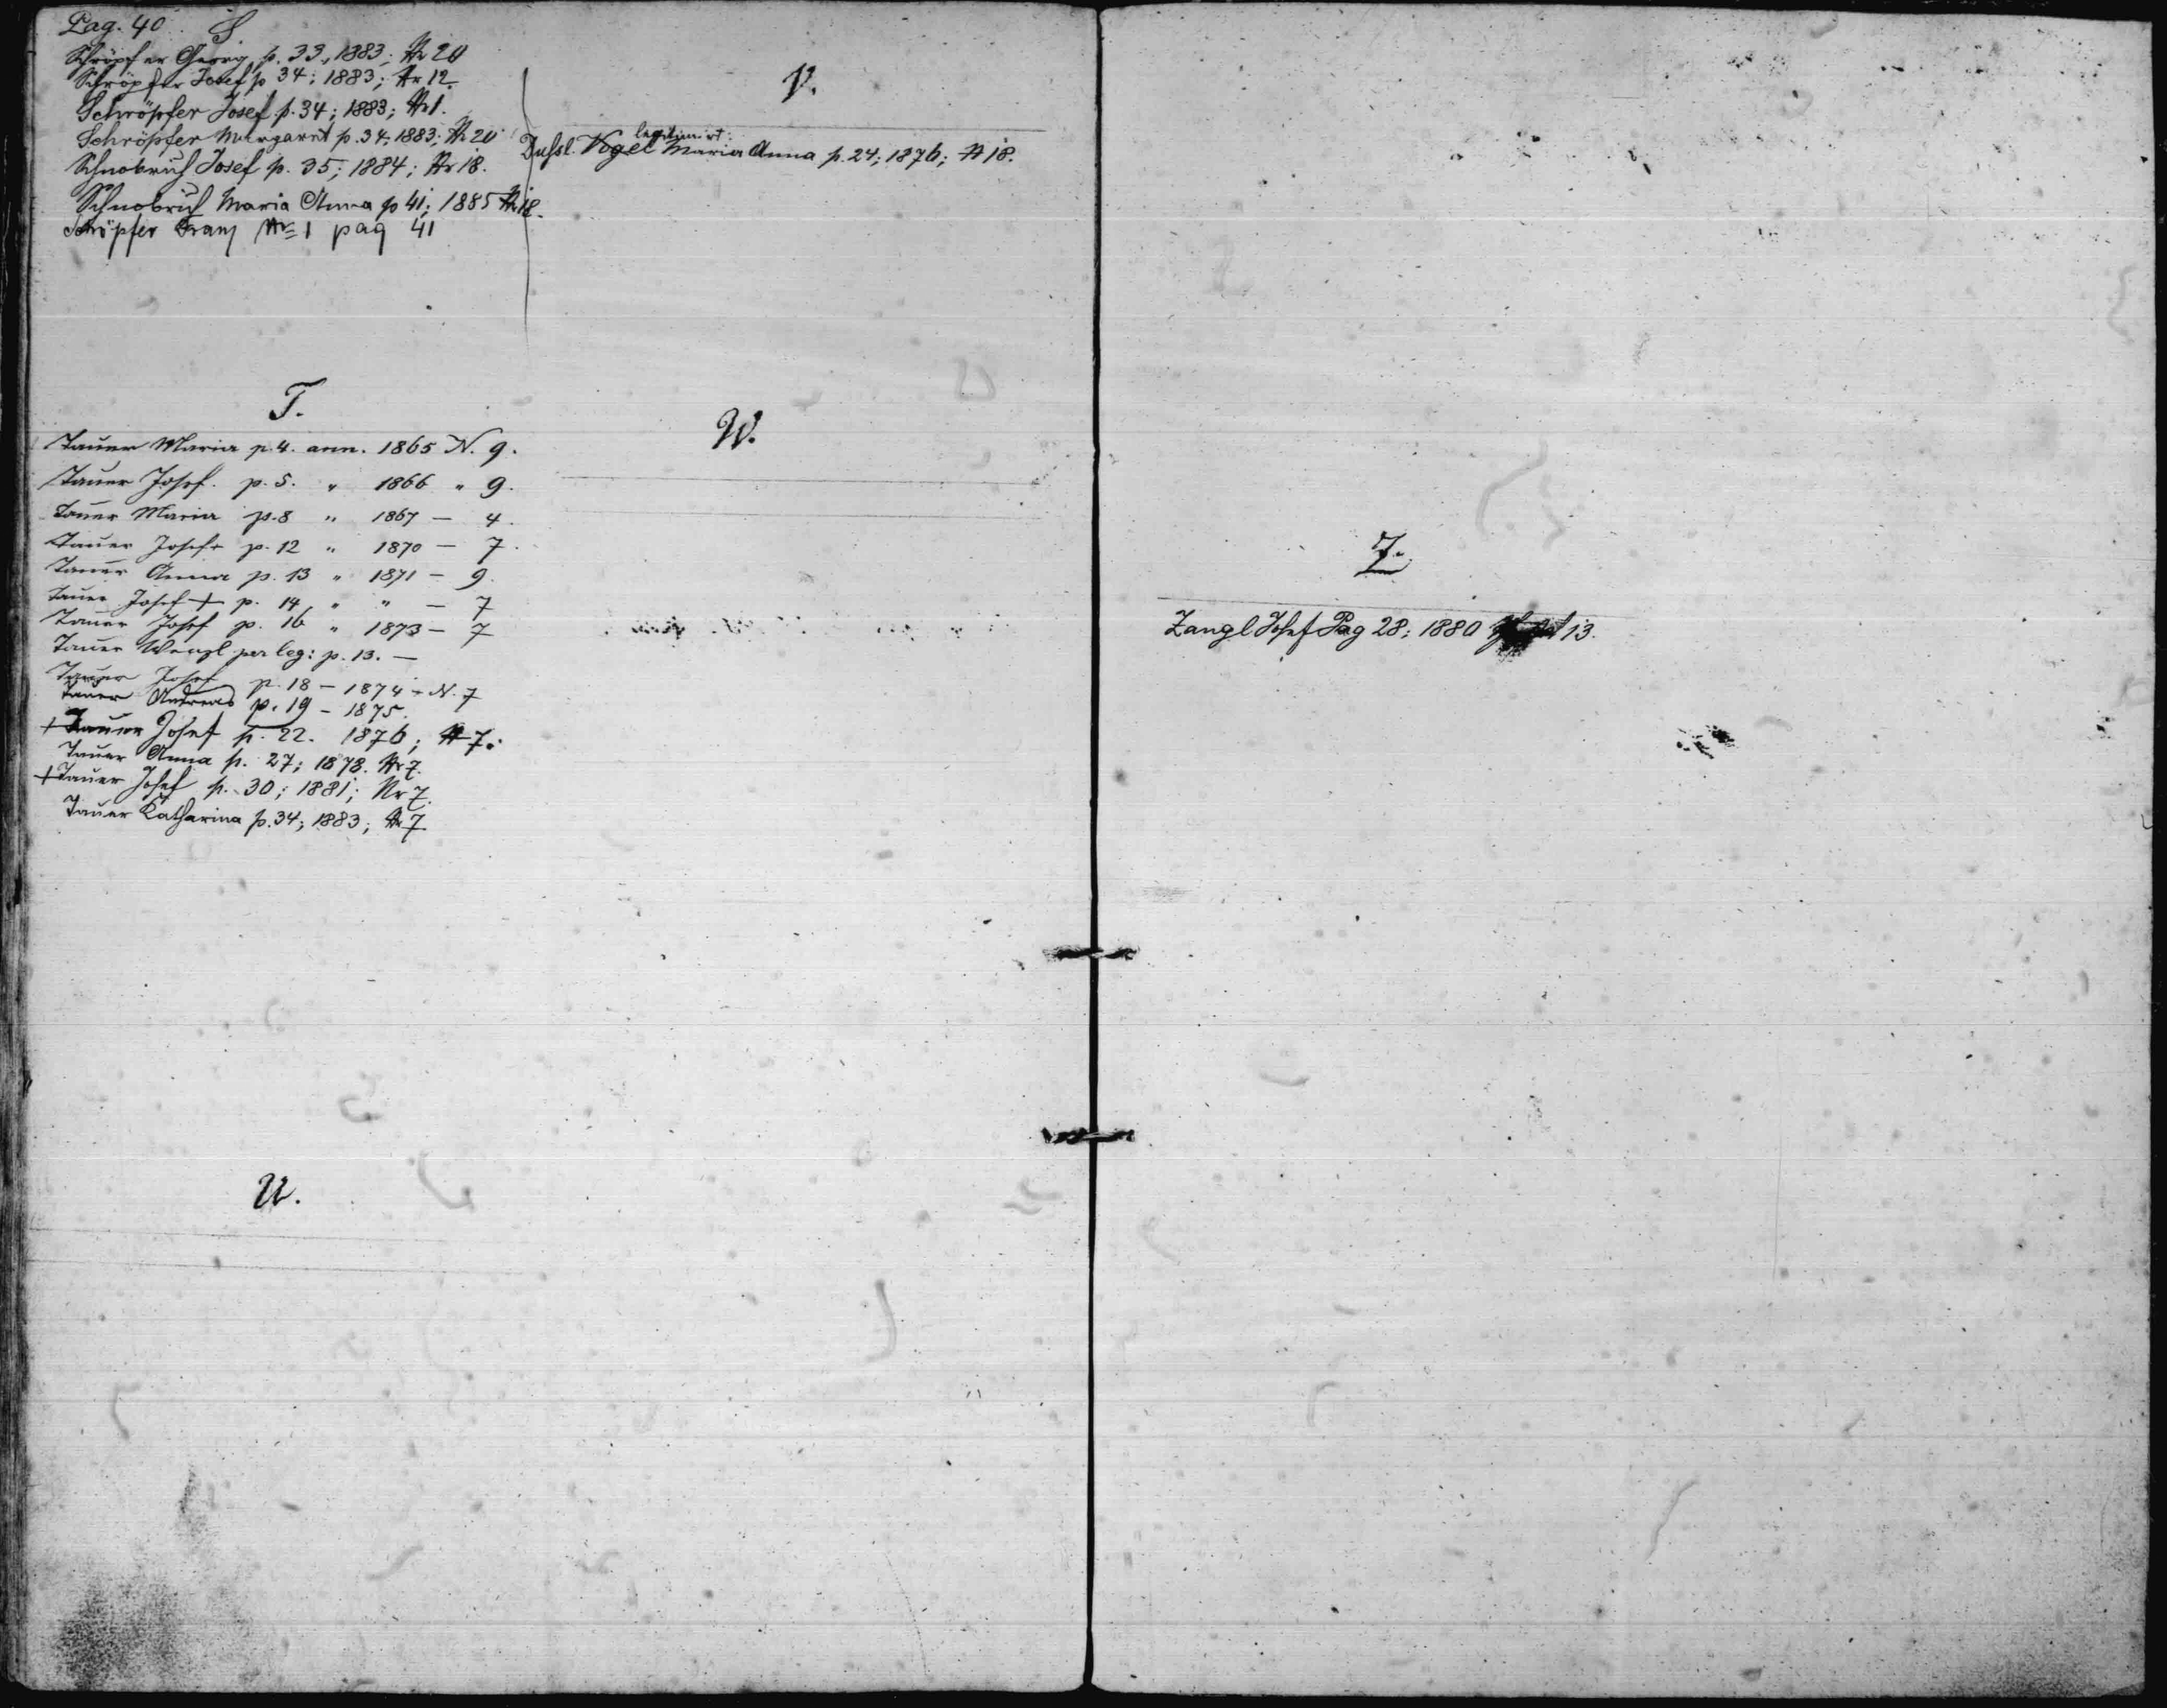 Pag. 40. S.
Schröpfer Georg p. 33, 1883; Nr 20
Schröpfer Josef p 34; 1883; Nr 12.
Schröpfer Josef p. 34; 1883; Nr 1.
Schröpfer Margaret p. 34; 1883; Nr 20
Schnobrich Josef p. 35; 1884; Nr 18.
Schnobrich Maria Anna p 41; 1885 Nr 18.
Schröpfer Franz Nr 1 pag 41
T.
Tauer Maria p. 4. ann. 1865 N. 9.
Tauer Josef. p. 5. " 1866 " 9.
Tauer Maria p. 8 " 1867 — 4.
Tauer Josef p. 12 " 1870 — 7.
Tauer Anna p. 13 " 1871 — 9.
Tauer Josef + p. 14 " " — 7
Tauer Josef p. 16 " 1873 — 7
Tauer Wenzl per leg: p. 13. —
Tauer Josef p. 18 — 1874 — N. 7
Tauer Andreas p. 19 — 1875.
+ Tauer Josef p. 22. 1876; N 7.
Tauer Anna p. 27; 1878. Nr 7.
+ Tauer Josef p. 30; 1881; Nr 7.
Tauer Katharina p. 34; 1883; Nr 7.
U.
V.
legitimirt:
Vogel Maria Anna p. 24; 1876; N 18.
W.
Z.
Zangl Josef Pag 28; 1880 13.